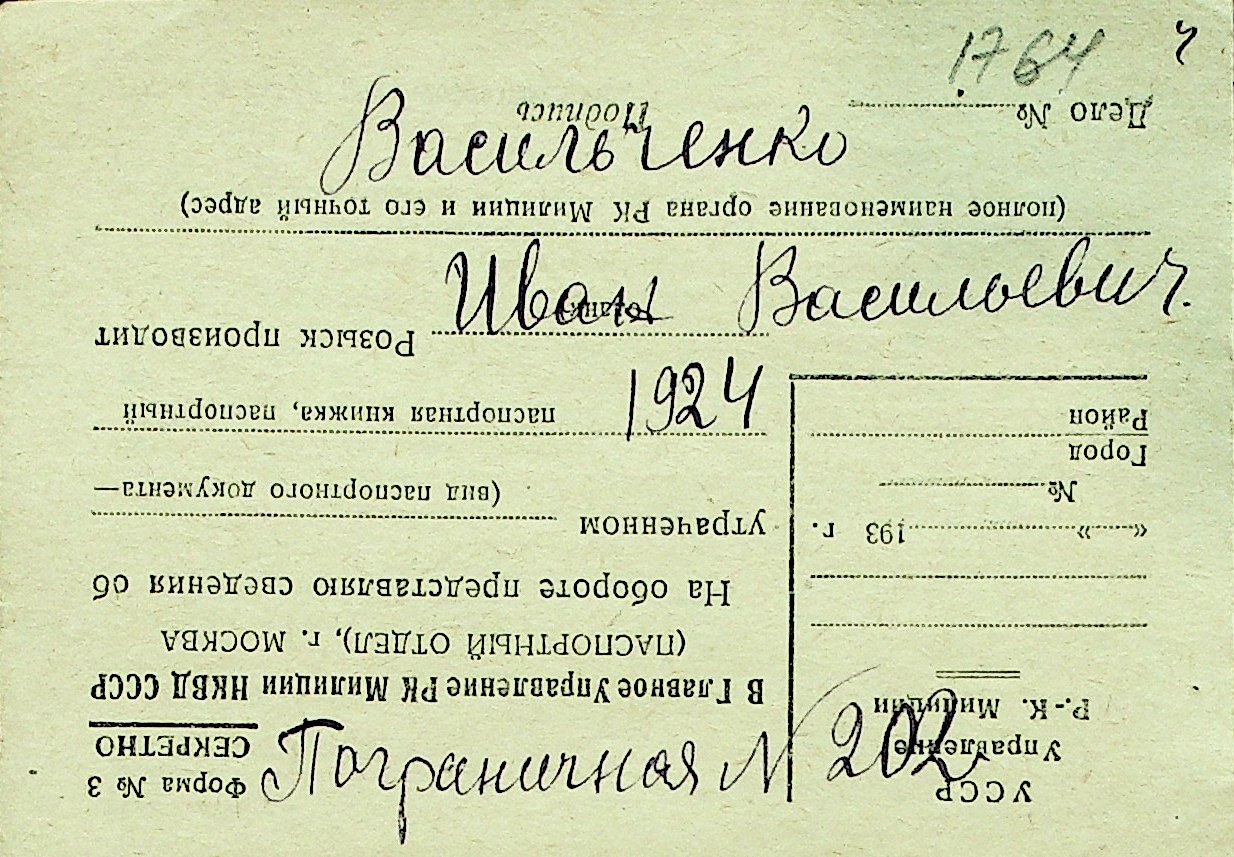 1764
ч
Васильченко
Иван Васильевич.
1924
Пограничная N 202
УССР
Управление
Р.-К. Милиции
« » 193 г.
№
Город
Район
Форма № 3
СЕКРЕТНО
В Главное Управление РК Милиции НКВД СССР
(ПАСПОРТНЫЙ ОТДЕЛ), г. МОСКВА
На обороте представляю сведения об
утраченном
(вид паспортного документа—
паспортная книжка, паспортный
Розыск производит
(полное наименование органа РК Милиции и его точный адрес)
Дело №
Подпись